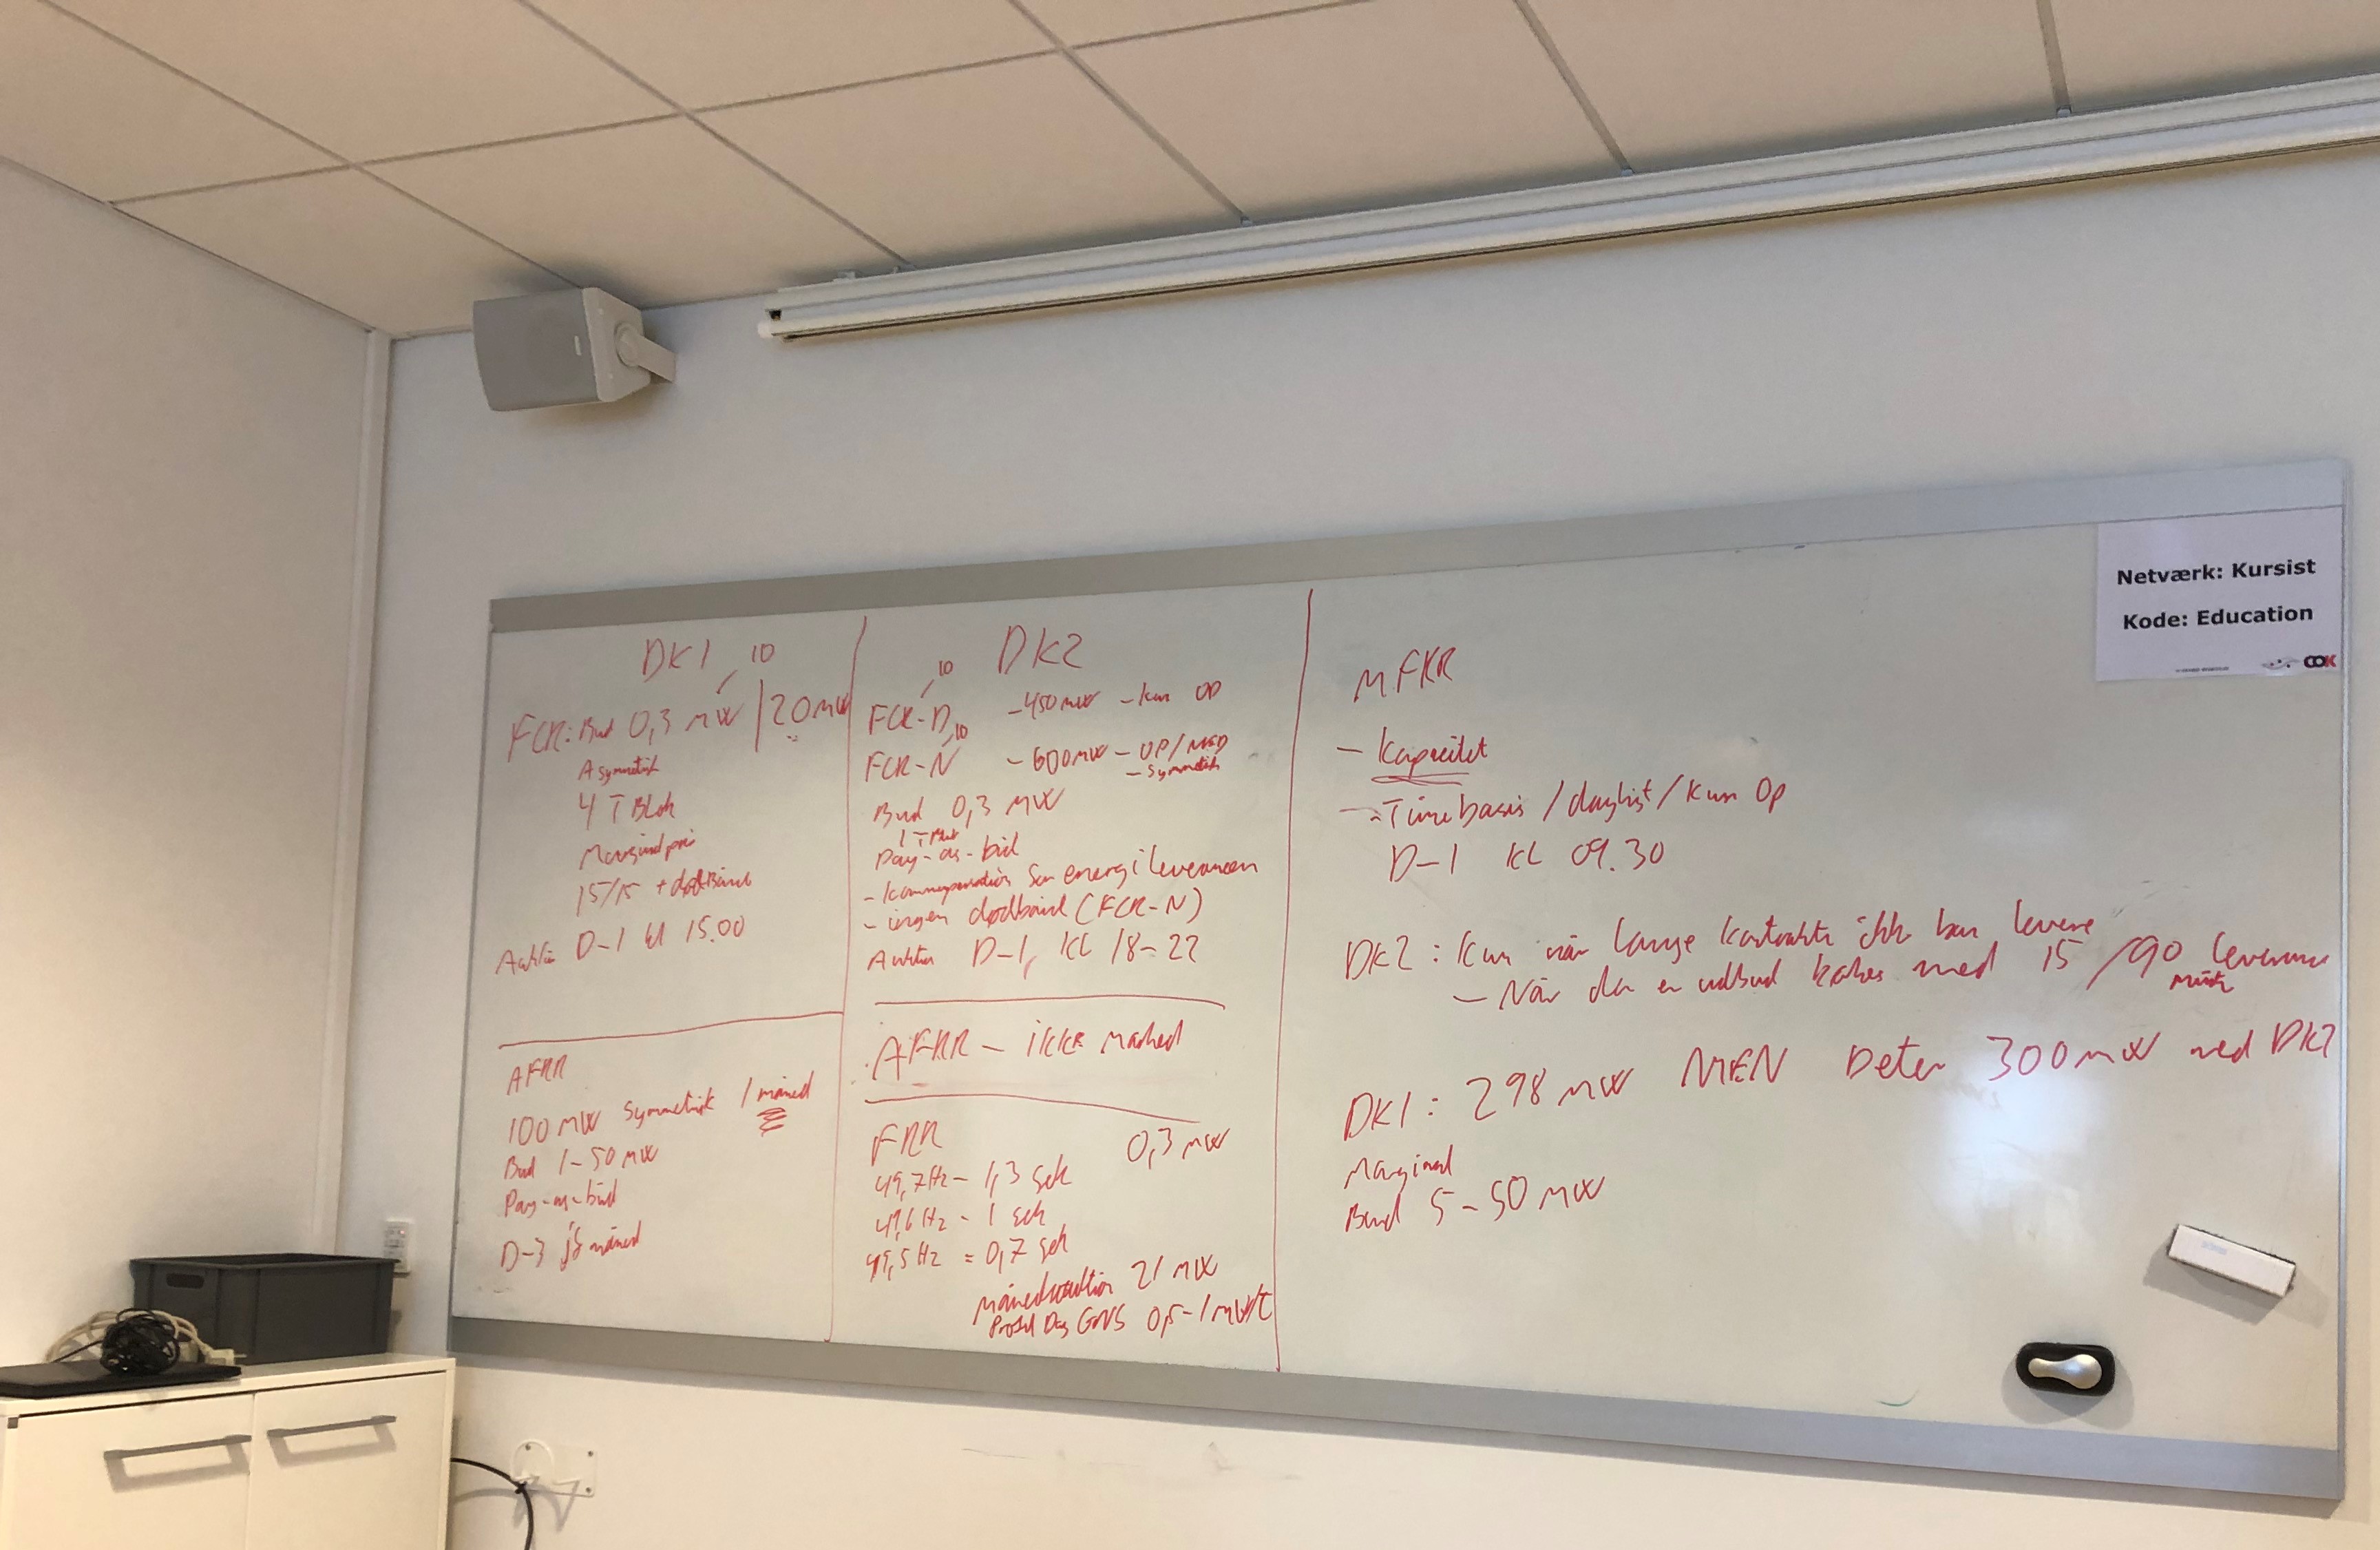 DK1
10
FCR: Bud 0,3 MW / 20 MW
Asymmetrisk
4 T Blok
Marginalpris
15/15 + dødbånd
Auktion D-1 kl 15.00
AFRR
100 MW Symmetrisk / måned
Bud 1-50 MW
Pay-as-bid
D-3 måned
DK2
10
FCR-D - 450 MW - kun OP
10
FCR-N - 600 MW - OP/NED
- Symmetrisk
Bud 0,3 MW
1 T Blok
Pay-as-bid
- som energileverancen
- ingen dødbånd (FCR-N)
Auktion D-1, kl 18-22
AFRR - ikke marked
FRR 0,3 MW
49,7 Hz - 1,3 sek
49,6 Hz - 1 sek
49,5 Hz = 0,7 sek
21 MW
Dag 0,5-1 MW
MFRR
- Kapacitet
- Timebasis / dagligt / kun Op
D-1 kl 09.30
DK2: Kun når lange kontrakter ikke kan levere
- Når der er udbud købes med 15/90 leverance
DK1: 298 MW MEN Deter 300 MW ved DK2
Marginal
Bud 5-50 MW
Netværk: Kursist
Kode: Education